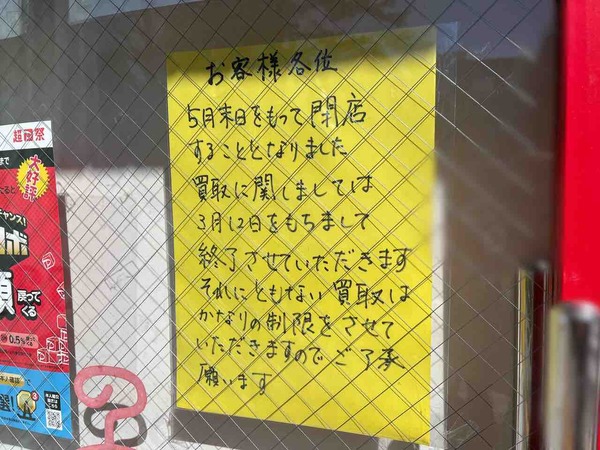 お客様各位
5月末日をもって閉店
することとなりました
買取に関しましては
3月12日をもちまして
終了させていただきます
それにともない買取は
かなりの制限をさせて
いただきますのでご了承
願います
超祭
まで
大好評
チャンス!
ボ
額
戻って
くる
0.5%